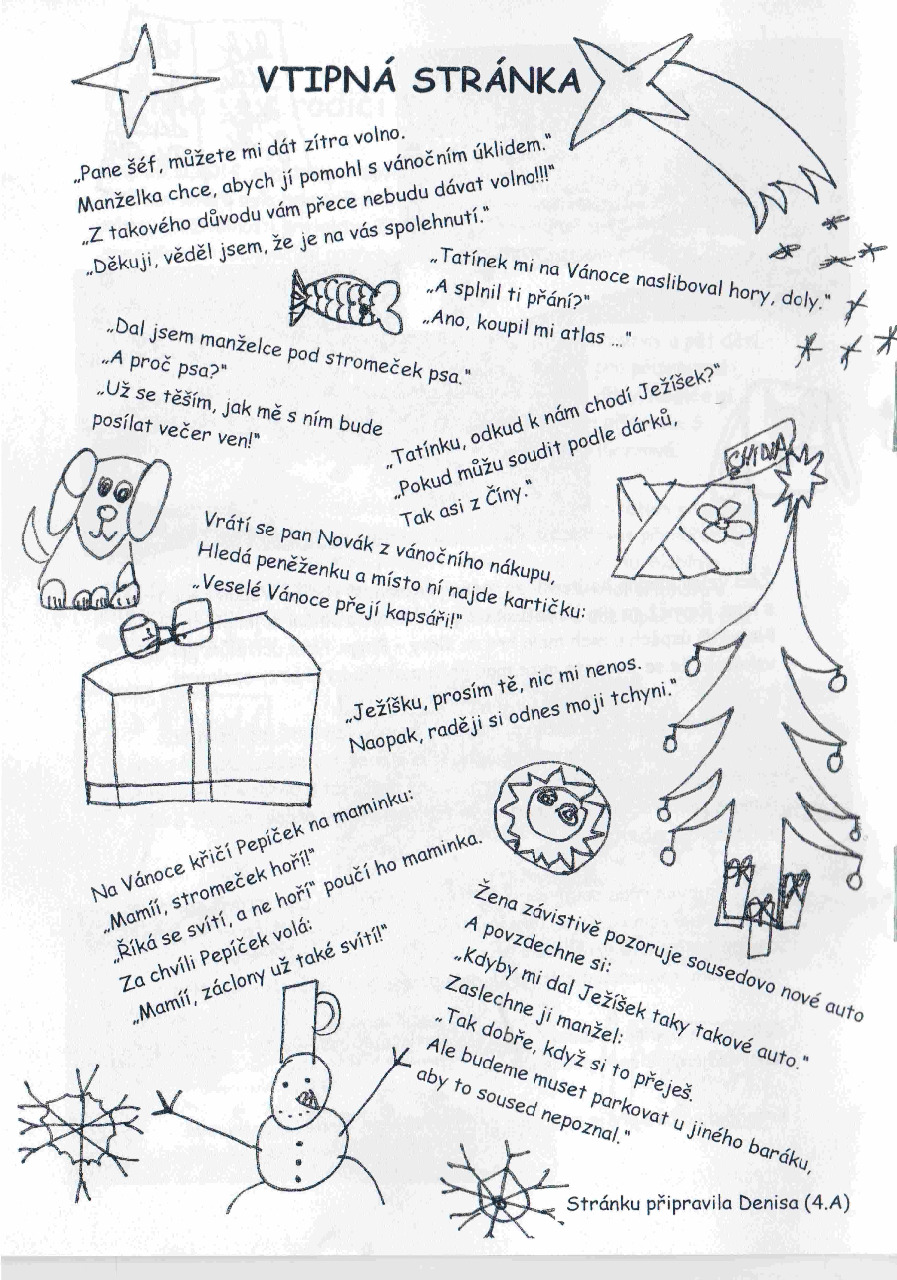 VTIPNÁ STRÁNKA
„Pane šéf, můžete mi dát zítra volno.
Manželka chce, abych jí pomohl s vánočním úklidem."
„Z takového důvodu vám přece nebudu dávat volno!!!"
„Děkuji, věděl jsem, že je na vás spolehnutí."
„Tatínek mi na Vánoce nasliboval hory, doly."
„A splnil ti přání?"
„Ano, koupil mi atlas ..."
„Dal jsem manželce pod stromeček psa."
„A proč psa?"
„Už se těším, jak mě s ním bude
posílat večer ven!"
„Tatínku, odkud k nám chodí Ježíšek?"
„Pokud můžu soudit podle dárků,
Tak asi z Číny."
CHINA
Vrátí se pan Novák z vánočního nákupu,
Hledá peněženku a místo ní najde kartičku:
„Veselé Vánoce přejí kapsáři!"
„Ježíšku, prosím tě, nic mi nenos.
Naopak, raději si odnes moji tchyni."
Na Vánoce křičí Pepíček na maminku:
„Mamíí, stromeček hoří!"
„Říká se svítí, a ne hoří" poučí ho maminka.
Za chvíli Pepíček volá:
„Mamíí, záclony už také svítí!"
Žena závistivě pozoruje sousedovo nové auto
A povzdechne si:
„Kdyby mi dal Ježíšek taky takové auto."
Zaslechne ji manžel:
„Tak dobře, když si to přeješ.
Ale budeme muset parkovat u jiného baráku,
aby to soused nepoznal."
Stránku připravila Denisa (4.A)